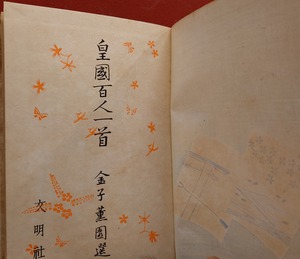 皇國百人一首
金子薫園選
文明社